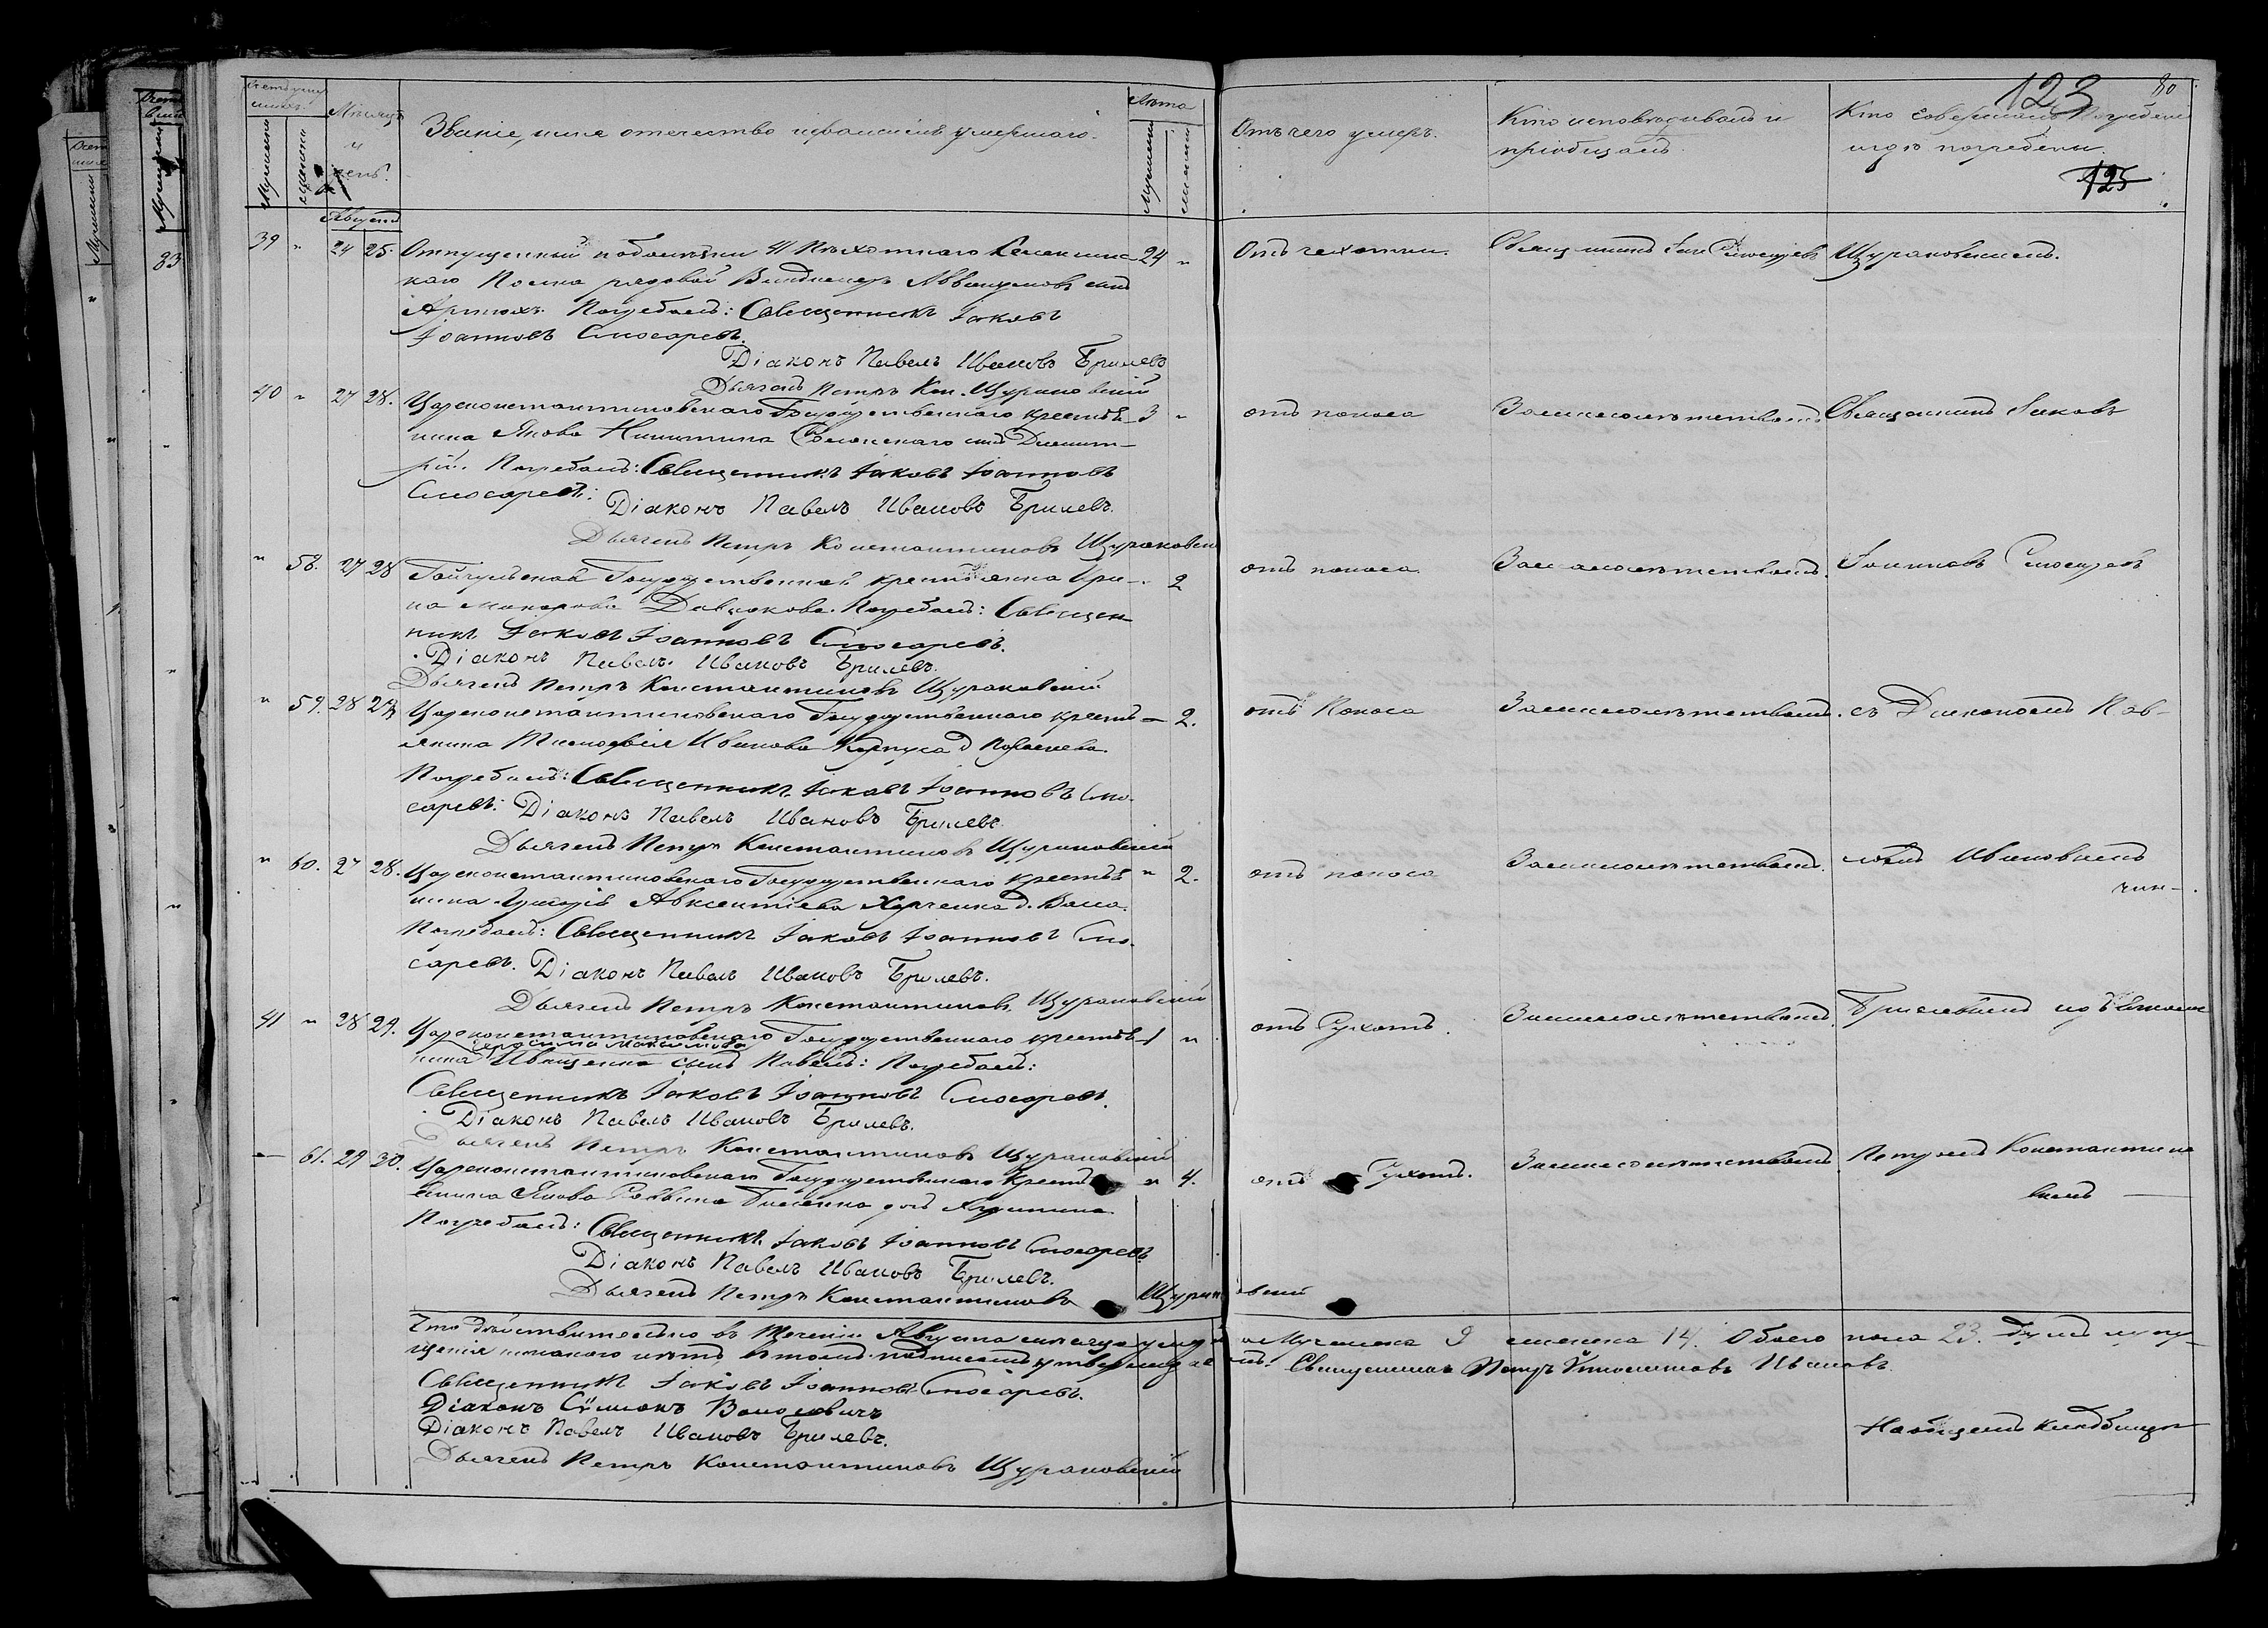 Счетъ умер-
шихъ.
Мужеска
Женска
Мѣсяцъ
и
день.
Званіе, имя отечество и фамилія умершаго.
Лѣта
Мужеска
Женска
Отъ чего умеръ.
Кто исповѣдывалъ и
пріобщалъ.
Кто совершалъ Погребеніе
и гдѣ погребены.
123
80
125
Августъ
39 " 24 25. Отпущенный 41 Пѣхотнаго Селенгин- 24 "
каго Полка рядовой сынъ
Погребалъ: Священникъ Іаковъ
Іоанновъ Слюсаревъ.
Діаконъ Павелъ Ивановъ Брилевъ
Дьячекъ Петръ Кон. Щурановскій
Отъ чахотки. Священникъ Іак. Слюсаревъ Щурановскимъ.
40 " 27 28. Цареконстантиновскаго Государственнаго крестья- 3 "
нина Якова Никитина сынъ Димит-
рій. Погребалъ: Священникъ Іаковъ Іоанновъ
Слюсаревъ.
Діаконъ Павелъ Ивановъ Брилевъ.
Дьячекъ Петръ Константиновъ Щурановскій
отъ поноса За малолѣтствомъ Священникъ Іаковъ
" 58. 27 28 Государственная крестьянка Ири- " 2
на Макарова Погребалъ: Священ-
никъ Іаковъ Іоанновъ Слюсаревъ.
Діаконъ Павелъ Ивановъ Брилевъ.
Дьячекъ Петръ Константиновъ Щурановскій
отъ поноса За малолѣтствомъ. Іоанновъ Слюсаревъ
" 59. 28 29 Цареконстантиновскаго Государственнаго кресть- 2.
янина Тимофея Иванова д.
Погребалъ: Священникъ Іаковъ Іоанновъ Слю-
саревъ: Діаконъ Павелъ Ивановъ Брилевъ.
Дьячекъ Петръ Константиновъ Щурановскій
отъ Поноса За малолѣтствомъ. съ Діакономъ Пав-
" 60. 27 28. Цареконстантиновскаго Государственнаго крестья- " 2.
нина Авксентіева Харченка д.
Погребалъ: Священникъ Іаковъ Іоанновъ Слю-
саревъ. Діаконъ Павелъ Ивановъ Брилевъ.
Дьячекъ Петръ Константиновъ Щурановскій
отъ поноса За малолѣтствомъ. ломъ Ивановымъ
41 " 28 29. Цареконстантиновскаго Государственнаго крестья- 1 "
Герасима Максимова
нина Иващенка сынъ Павелъ: Погребалъ:
Священникъ Іаковъ Іоанновъ Слюсаревъ.
Діаконъ Павелъ Ивановъ Брилевъ.
Дьячекъ Петръ Константиновъ Щурановскій
отъ Сухотъ. За малолѣтствомъ. Брилевымъ
61. 29 30. Цареконстантиновскаго Государственнаго Кресть " 4.
янина Якова дочь
Погребалъ: Священникъ Іаковъ Іоанновъ Слюсаревъ
Діаконъ Павелъ Ивановъ Брилевъ.
Дьячекъ Петръ Константиновъ Щурановскій
отъ Сухотъ. За малолѣтствомъ Петромъ Константино
вымъ
Что дѣйствительно въ теченіи Августа мѣсяца умерло Мужеска 9 женска 14. Обоего пола 23.
никакого нѣтъ въ томъ подписомъ утверждаемъ. Священникъ Петръ Ивановъ
Священникъ Іаковъ Іоанновъ Слюсаревъ.
Діаконъ Сѵмеонъ
Діаконъ Павелъ Ивановъ Брилевъ.
Дьячекъ Петръ Константиновъ Щурановскій
На общемъ кладбищѣ